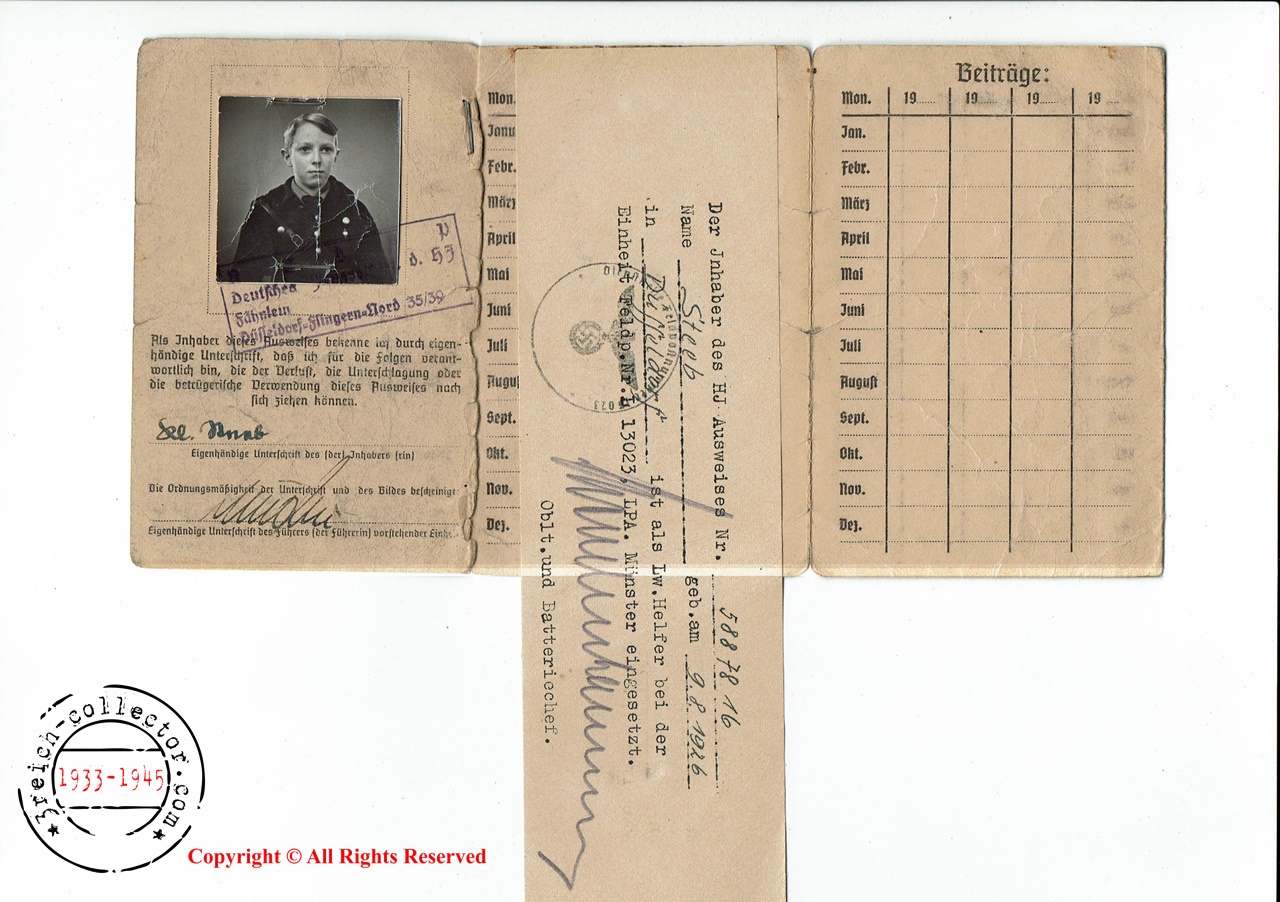 Deutsches d. HJ
Fähnlein
Düsseldorf-Flingern-Nord 35/39
Als Inhaber dieses Ausweises bekenne ich durch eigen-
händige Unterschrift, daß ich für die Folgen verant-
wortlich bin, die der Verlust, die Unterschlagung oder
die betrügerische Verwendung dieses Ausweises nach
sich ziehen können.
Eigenhändige Unterschrift des (der) Inhabers (rin)
Die Ordnungsmäßigkeit der Unterschrift und des Bildes bescheinigt:
Eigenhändige Unterschrift des Führers (der Führerin) vorstehender
Mon.
Janu
Febr.
März
April
Mai
Juni
Juli
Augus
Sept.
Okt.
Nov.
Dez.
Der Jnhaber des HJ Ausweises Nr. 5887816
Name Steeb geb.am 9.8.1926
in Düsseldorf ist als Lw.Helfer bei der
Einheit Feldp.Nr.L 13023, LPA. Münster eingesetzt.
Oblt.und Batteriechef.
Beiträge:
Mon. 19 19 19 19
Jan.
Febr.
März
April
Mai
Juni
Juli
August
Sept.
Okt.
Nov.
Dez.
3reich-collector.com
1933-1945
Copyright © All Rights Reserved